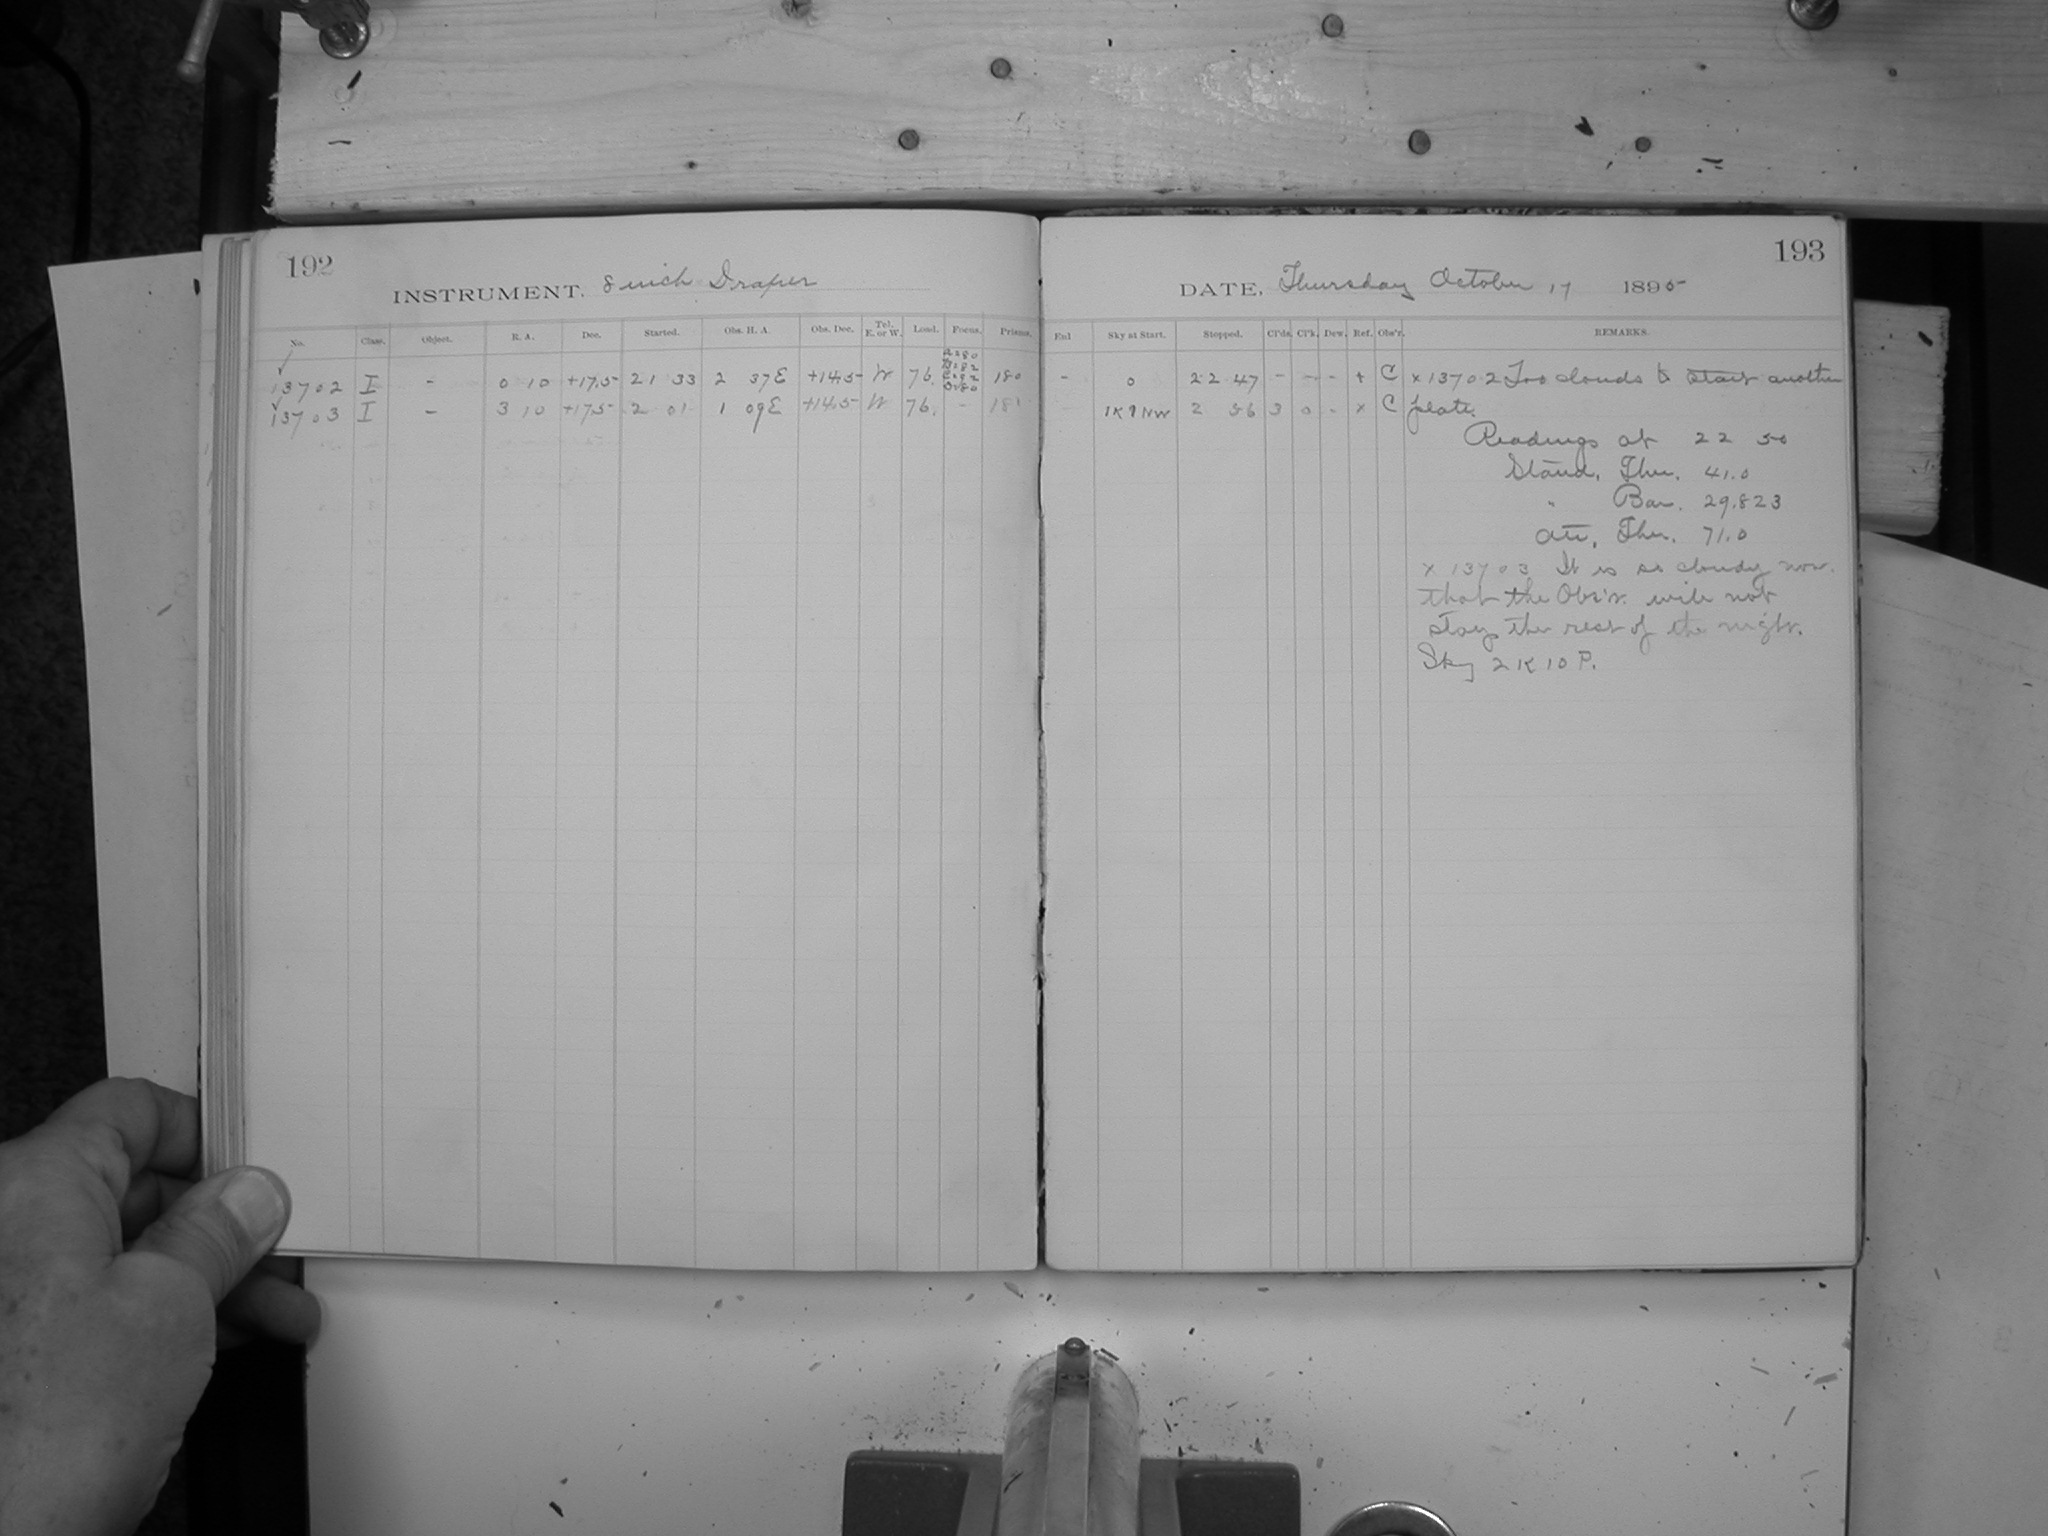 192
INSTRUMENT, 8 inch Draper
No. Class. Object. R. A. Dec. Started. Obs. H. A. Obs. Dec. Tel. E. or W. Load. Focus. Prisms.
13702 I - 0 10 +17.5 21 33 2 37E +14.5 W 76. 180
13703 I - 3 10 +17.5 2 01 1 09E +14.5 W 76. -
193
DATE, Thursday October 17 1895
Sky at Start. Stopped. Cl'ds. Cl'k. Dew. Ref. Obs'r. REMARKS.
- 0 22 47 - - - + C x 13702 Too clouds to start another
1K9NW 2 56 3 0 - x C plate.
Readings at 22 50
Stand. Ther. 41.0
" Bar. 29.823
Att. Ther. 71.0
x 13703 It is so cloudy now.
that the Obs'r. will not
stay the rest of the night.
Sky 2K10P.